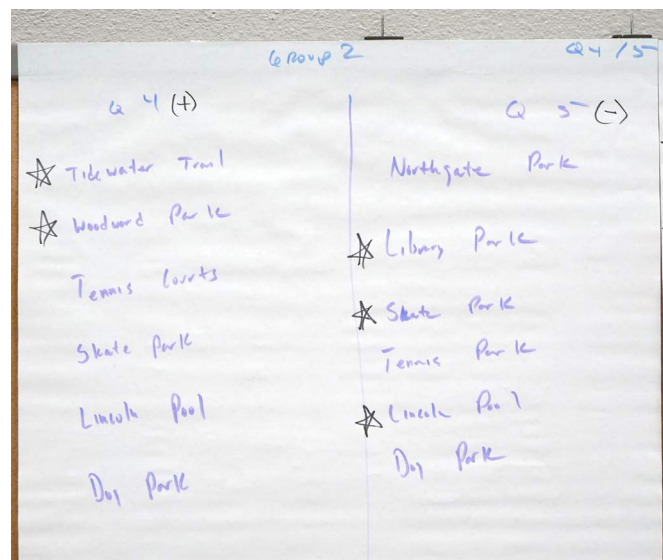 Group 2
Q4/5
Q 4 (+)
Tidewater Trail
Woodward Park
Tennis Courts
Skate Park
Lincoln Pool
Dog Park
Q 5 (-)
Northgate Park
Library Park
Skate Park
Tennis Park
Lincoln Pool
Dog Park